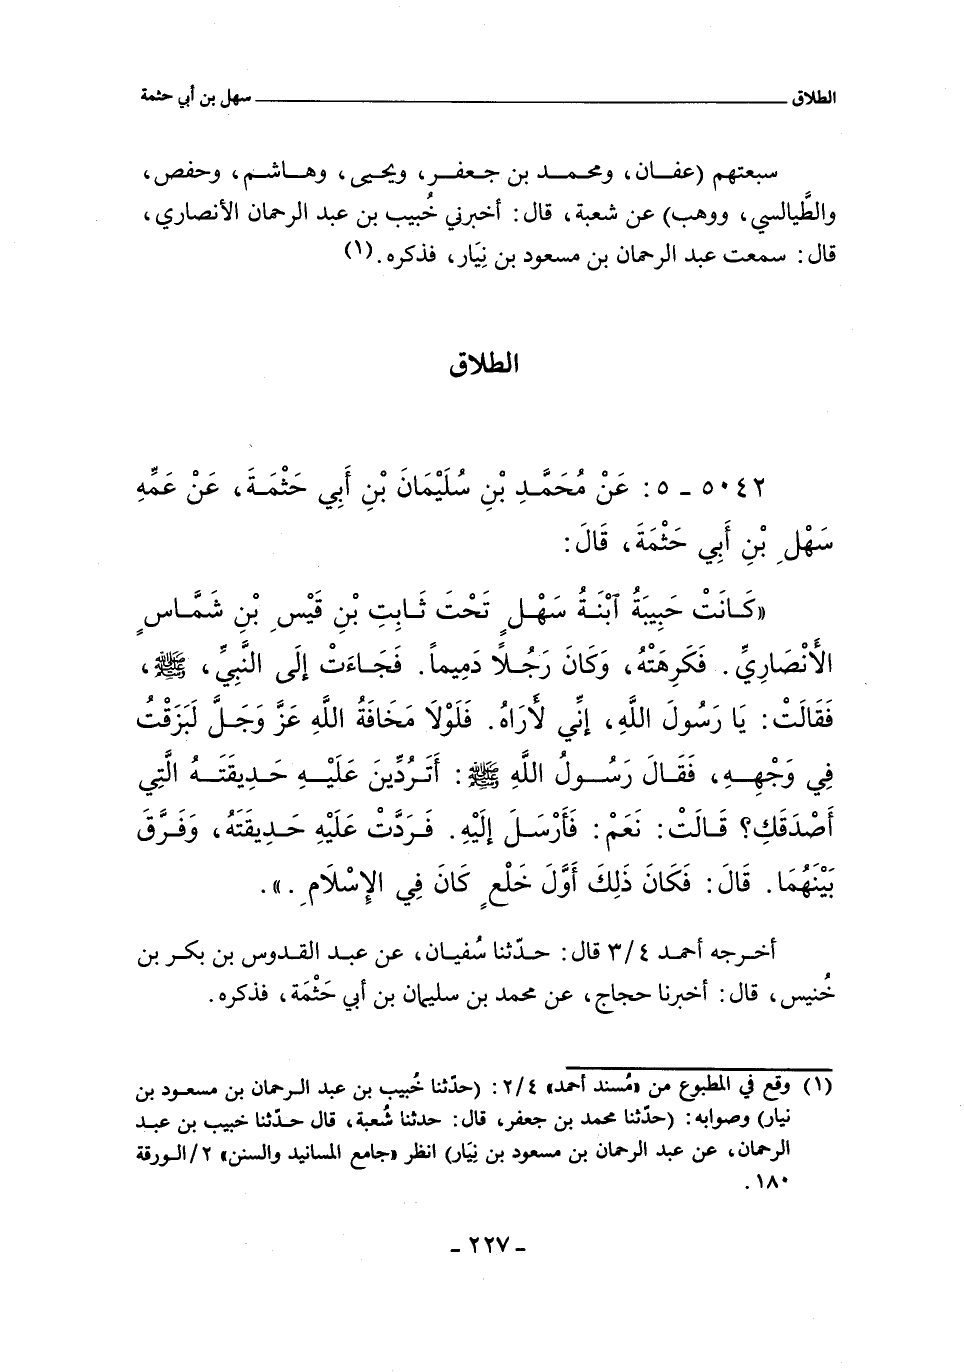 الطلاق ــــــــــــــــــــ سهل بن أبي حثمة
سبعتهم (عفــان، ومحمــد بن جـعفــر، ويحيى، وهــاشــم، وحفص،
والطَّيالسي، ووهب) عن شعبة، قال: أخبرني خُبيب بن عبد الرحمان الأنصاري،
قال: سمعت عبد الرحمان بن مسعود بن نِيَار، فذكره. (١)
الطلاق
٥٠٤٢ ـ ٥: عَنْ مُحَمَّدِ بْنِ سُلَيْمَانَ بْنِ أَبِي حَثْمَةَ، عَنْ عَمِّهِ
سَهْلِ بْنِ أَبِي حَثْمَةَ، قَالَ:
«كَـانَتْ حَبِيبَةُ ٱبْنَةُ سَهْلٍ تَحْتَ ثَـابِتِ بْنِ قَيْسِ بْنِ شَمَّاسٍ
الأَنْصَارِيِّ. فَكَرِهَتْهُ، وَكَانَ رَجُلاً دَمِيماً. فَجَاءَتْ إِلَى النَّبِيِّ، ﷺ،
فَقَالَتْ: يَا رَسُولَ اللَّهِ، إِنِّي لأَرَاهُ. فَلَوْلَا مَخَافَةُ اللَّهِ عَزَّ وَجَلَّ لَبَزَقْتُ
فِي وَجْهِـهِ، فَقَالَ رَسُـولُ اللَّهِ ﷺ: أَتَرُدِّينَ عَلَيْـهِ حَـدِيقَتَـهُ الَّتِي
أَصْدَقَكِ؟ قَـالَتْ: نَعَمْ: فَأَرْسَلَ إِلَيْهِ. فَـرَدَّتْ عَلَيْهِ حَـدِيقَتَهُ، وَفَـرَّقَ
بَيْنَهُمَا. قَالَ: فَكَانَ ذَلِكَ أَوَّلَ خَلْعٍ كَانَ فِي الإِسْلَامِ.».
أخـرجه أحمـد ٣/٤ قال: حـدّثنا سُفيـان، عن عبـد القـدوس بن بكـر بن
خُنيس، قال: أخبرنا حجاج، عن محمد بن سليمان بن أبي حَثْمَة، فذكره.
(١) وقع في المطبوع من «مُسند أحمد» ٢/٤: (حدّثنا خُبيب بن عبد الـرحمان بن مسعـود بن
نيار) وصوابه: (حدّثنا محمد بن جعفر، قال: حدثنا شُعبة، قال حـدّثنا خبيب بن عبـد
الرحمان، عن عبد الرحمان بن مسعود بن نِيَار) انظر «جامع المسانيد والسنن» ٢/الـورقة
١٨٠.
ـ ٢٢٧ ـ